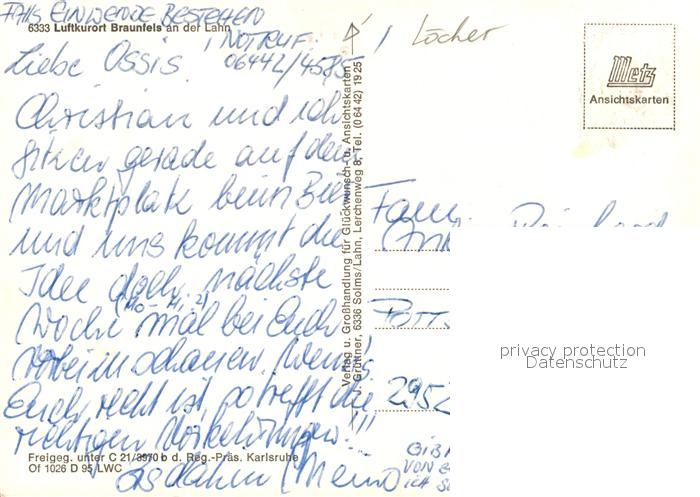 FALLS EINWENDE BESTEHEN
6333 Luftkurort Braunfels an der Lahn
NOTRUF
06442/4585
Liebe Ossis
Christian und ich
sitzen gerade auf dem
Marktplatz beim Bier
und uns kommt die
Idee doch nächste
(Mo - Mi, 2)
Woche mal bei Euch
vorbeizuschauen. Wenn's
Euch recht ist, so trefft die
richtigen Vorkehrungen!!!
Freigeg. unter C 21/3970 b d. Reg.-Präs. Karlsruhe
Of 1026 D 95 LWC
Bis dahin
Verlag u. Großhandlung für Glückwunsch- u. Ansichtskarten
J. Grüttner, 6336 Solms/Lahn, Lerchenweg 8, Tel. (0 64 42) 19 25
Löcher
Metz
Ansichtskarten
Fam.
2952
privacy protection
Datenschutz
VON